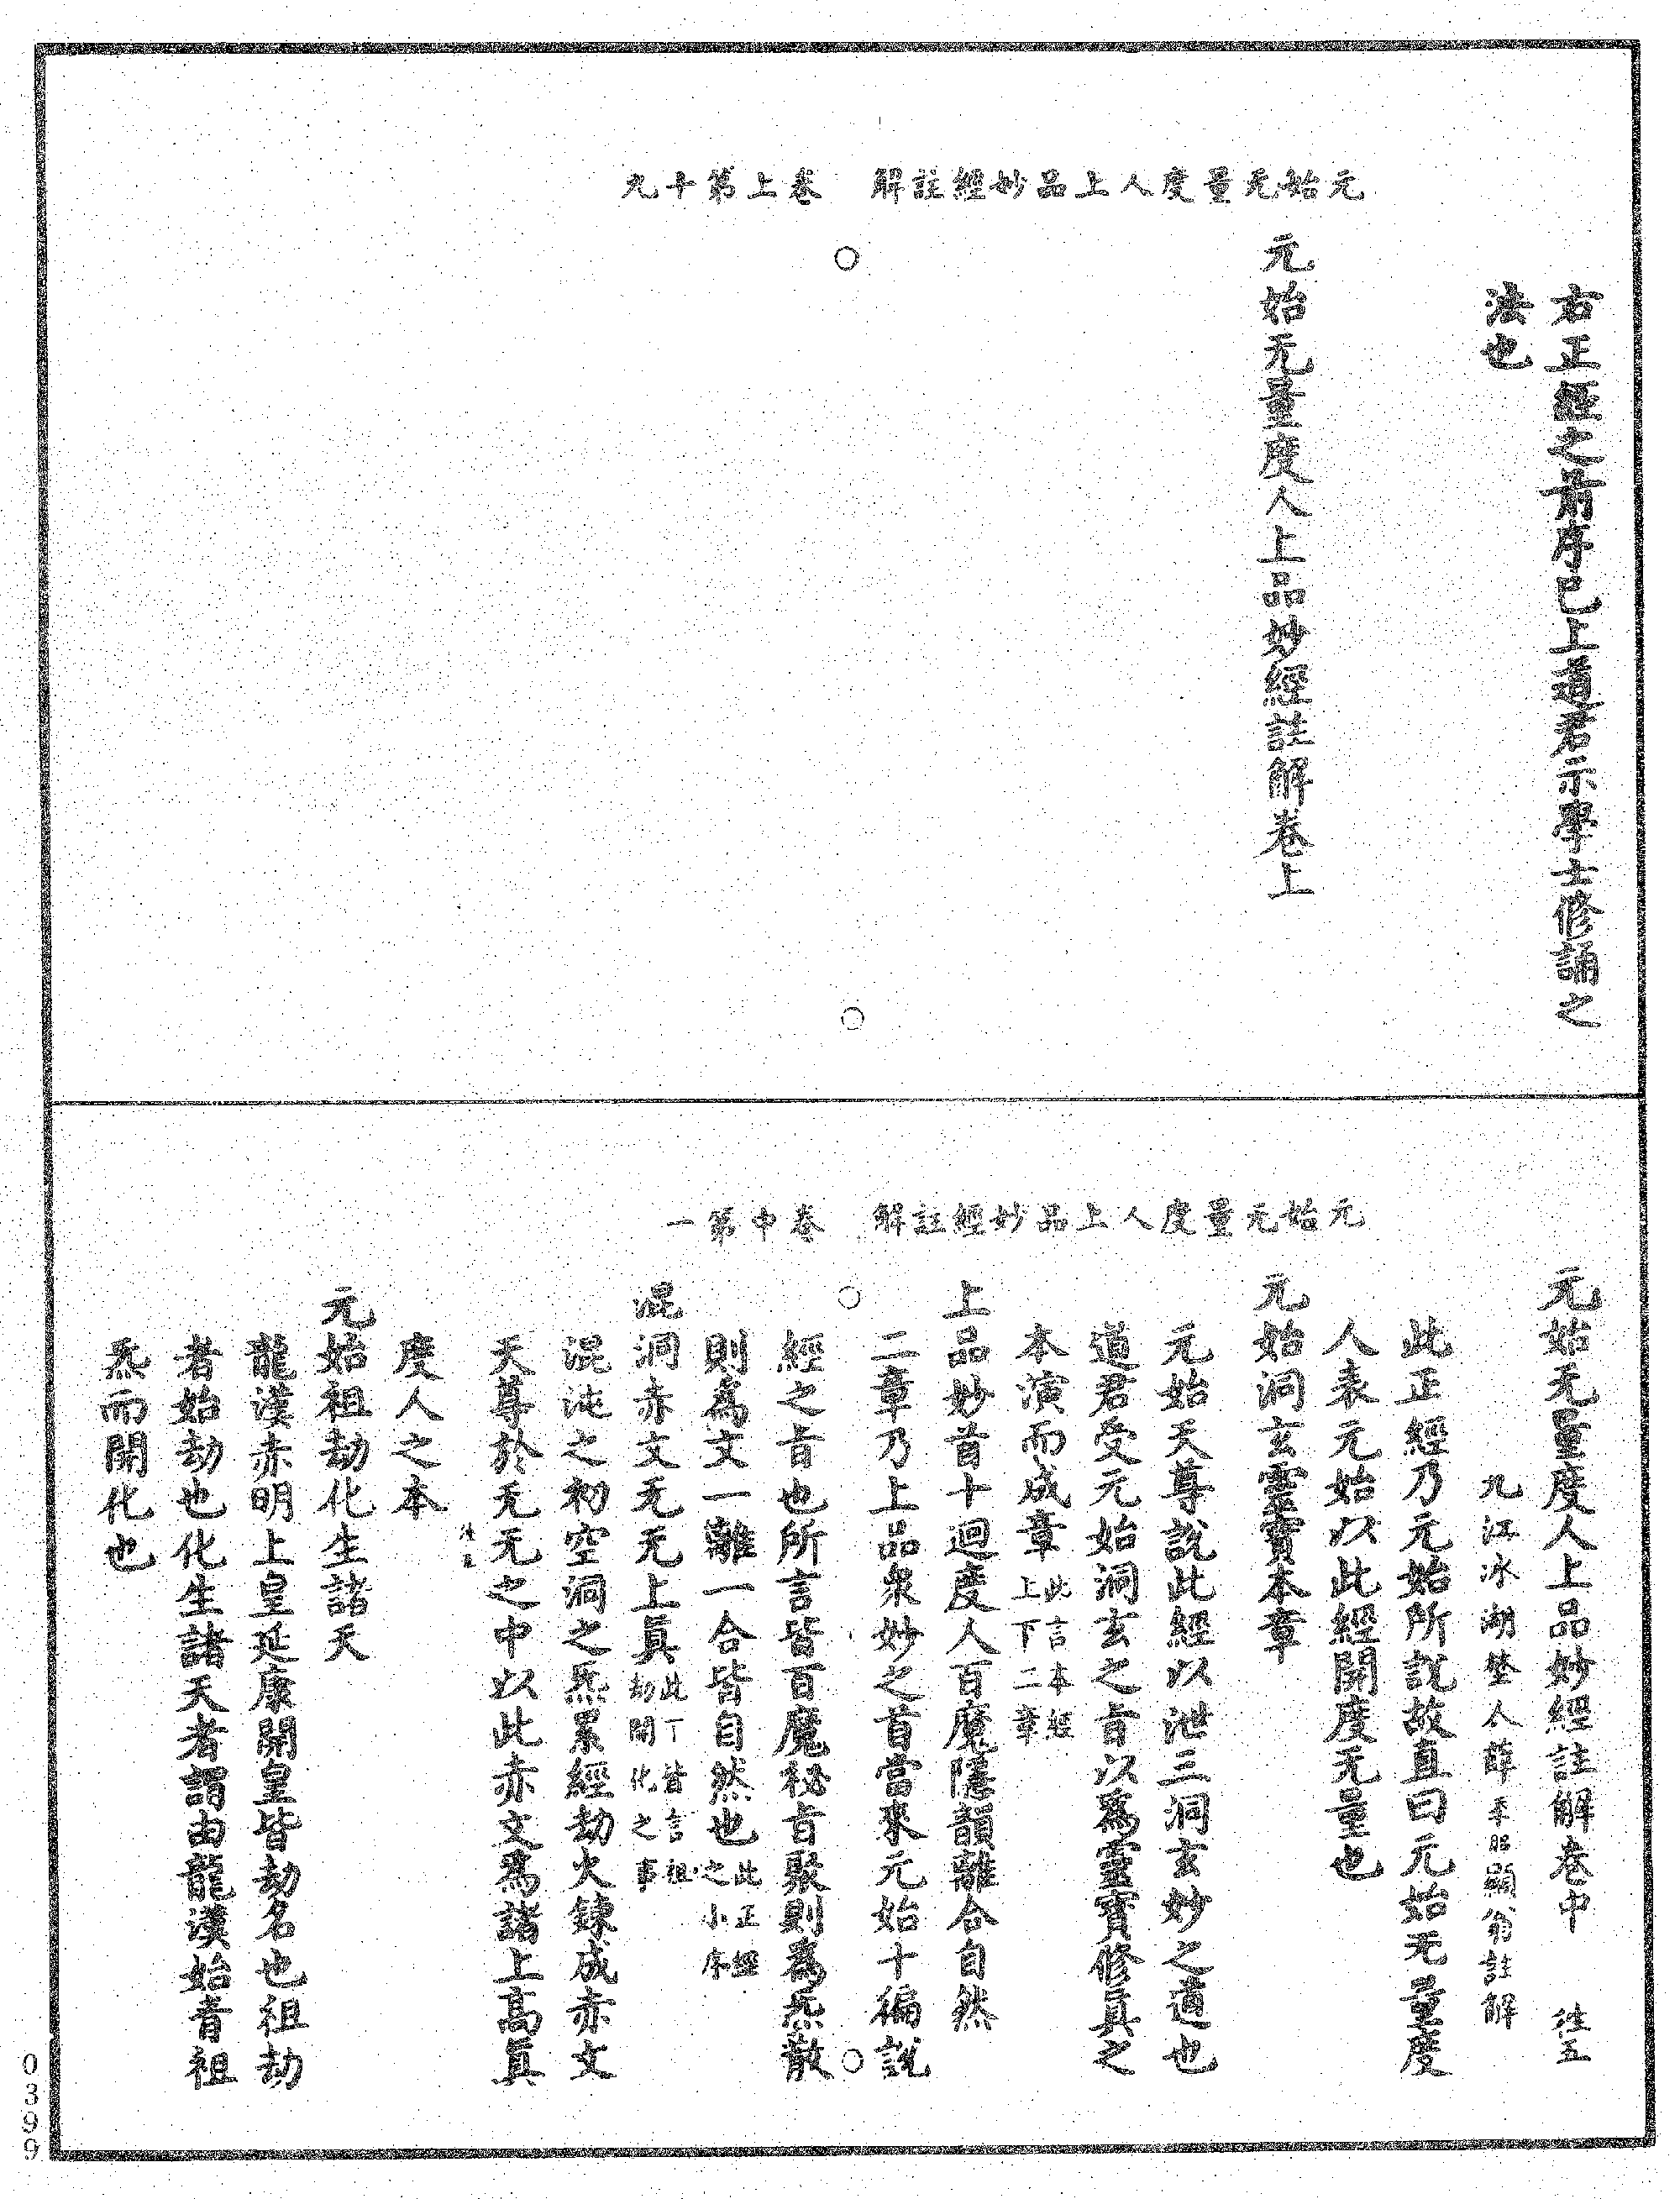 元始无量度人上品妙經註解　卷上第十九
右正經之前序已上道君示學士修誦之
法也
元始无量度人上品妙經註解卷上
元始无量度人上品妙經註解　卷中第一
元始无量度人上品妙經註解卷中
九江冰湖埜人薛季昭顯翁註解
此正經乃元始所說故直曰元始无量度
人表元始以此經開度无量也
元始洞玄靈寶本章
元始天尊說此經以泄三洞玄妙之道也
道君受元始洞玄之旨以爲靈寶修真之
本演而成章此言本經上下二章
上品妙首十迴度人百魔隱韻離合自然
二章乃上品衆妙之首當來元始十徧說
經之旨也所言皆百魔秘旨聚則爲炁散
則爲文一離一合皆自然也此正經之小序
混洞赤文无无上真此下皆言祖劫開化之事
混沌之初空洞之炁累經劫火鍊成赤文
天尊於无无之中以此赤文爲諸上高真
度人之本
元始祖劫化生諸天
龍漢赤明上皇延康開皇皆劫名也祖劫
者始劫也化生諸天者謂由龍漢始青祖
炁而開化也
0399